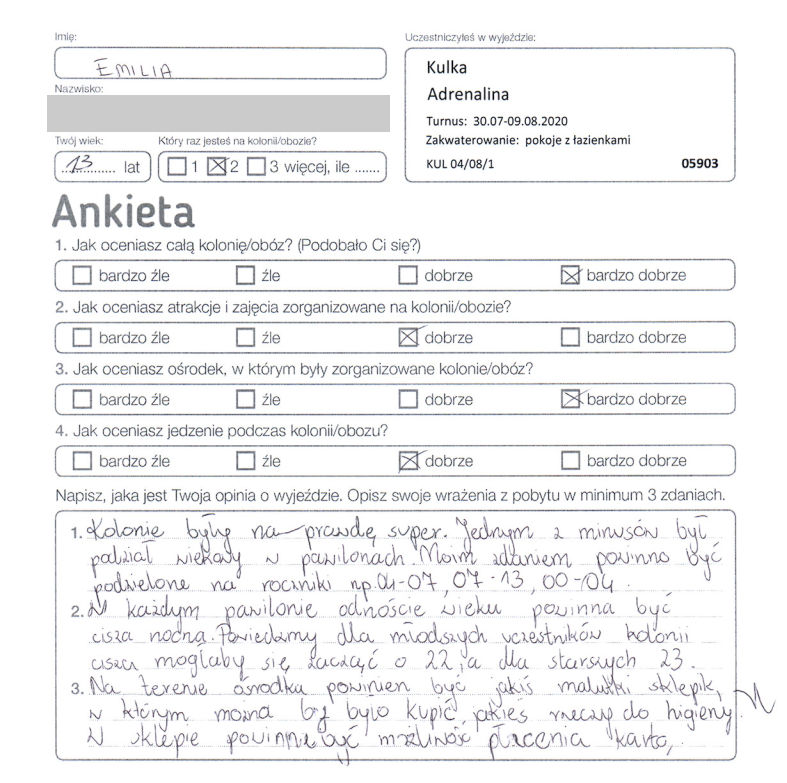 Imię:
EMILIA
Nazwisko:
Twój wiek:
13 lat
Który raz jesteś na kolonii/obozie?
1 2 3 więcej, ile .......
Uczestniczyłeś w wyjeździe:
Kulka
Adrenalina
Turnus: 30.07-09.08.2020
Zakwaterowanie: pokoje z łazienkami
KUL 04/08/1 05903
Ankieta
1. Jak oceniasz całą kolonię/obóz? (Podobało Ci się?)
bardzo źle źle dobrze bardzo dobrze
2. Jak oceniasz atrakcje i zajęcia zorganizowane na kolonii/obozie?
bardzo źle źle dobrze bardzo dobrze
3. Jak oceniasz ośrodek, w którym były zorganizowane kolonie/obóz?
bardzo źle źle dobrze bardzo dobrze
4. Jak oceniasz jedzenie podczas kolonii/obozu?
bardzo źle źle dobrze bardzo dobrze
Napisz, jaka jest Twoja opinia o wyjeździe. Opisz swoje wrażenia z pobytu w minimum 3 zdaniach.
1. Kolonie były na prawdę super. Jednym z minusów był
podział wiekowy w pawilonach. Moim zdaniem powinno być
podzielone na roczniki np. 04-07, 07-13, 00-04.
2. W każdym pawilonie odnoście wieku powinna być
cisza nocna. Powiedzmy dla młodszych uczestników kolonii
cisza mogłaby się zacząć o 22, a dla starszych 23.
3. Na terenie ośrodka powinien być jakiś malutki sklepik,
w którym można by było kupić jakieś rzeczy do higieny.
W sklepie powinna być możliwość płacenia kartą,